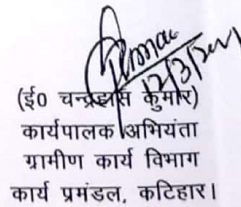 (ई0 चन्द्रहास कुमार)
कार्यपालक अभियंता
ग्रामीण कार्य विभाग
कार्य प्रमंडल, कटिहार।